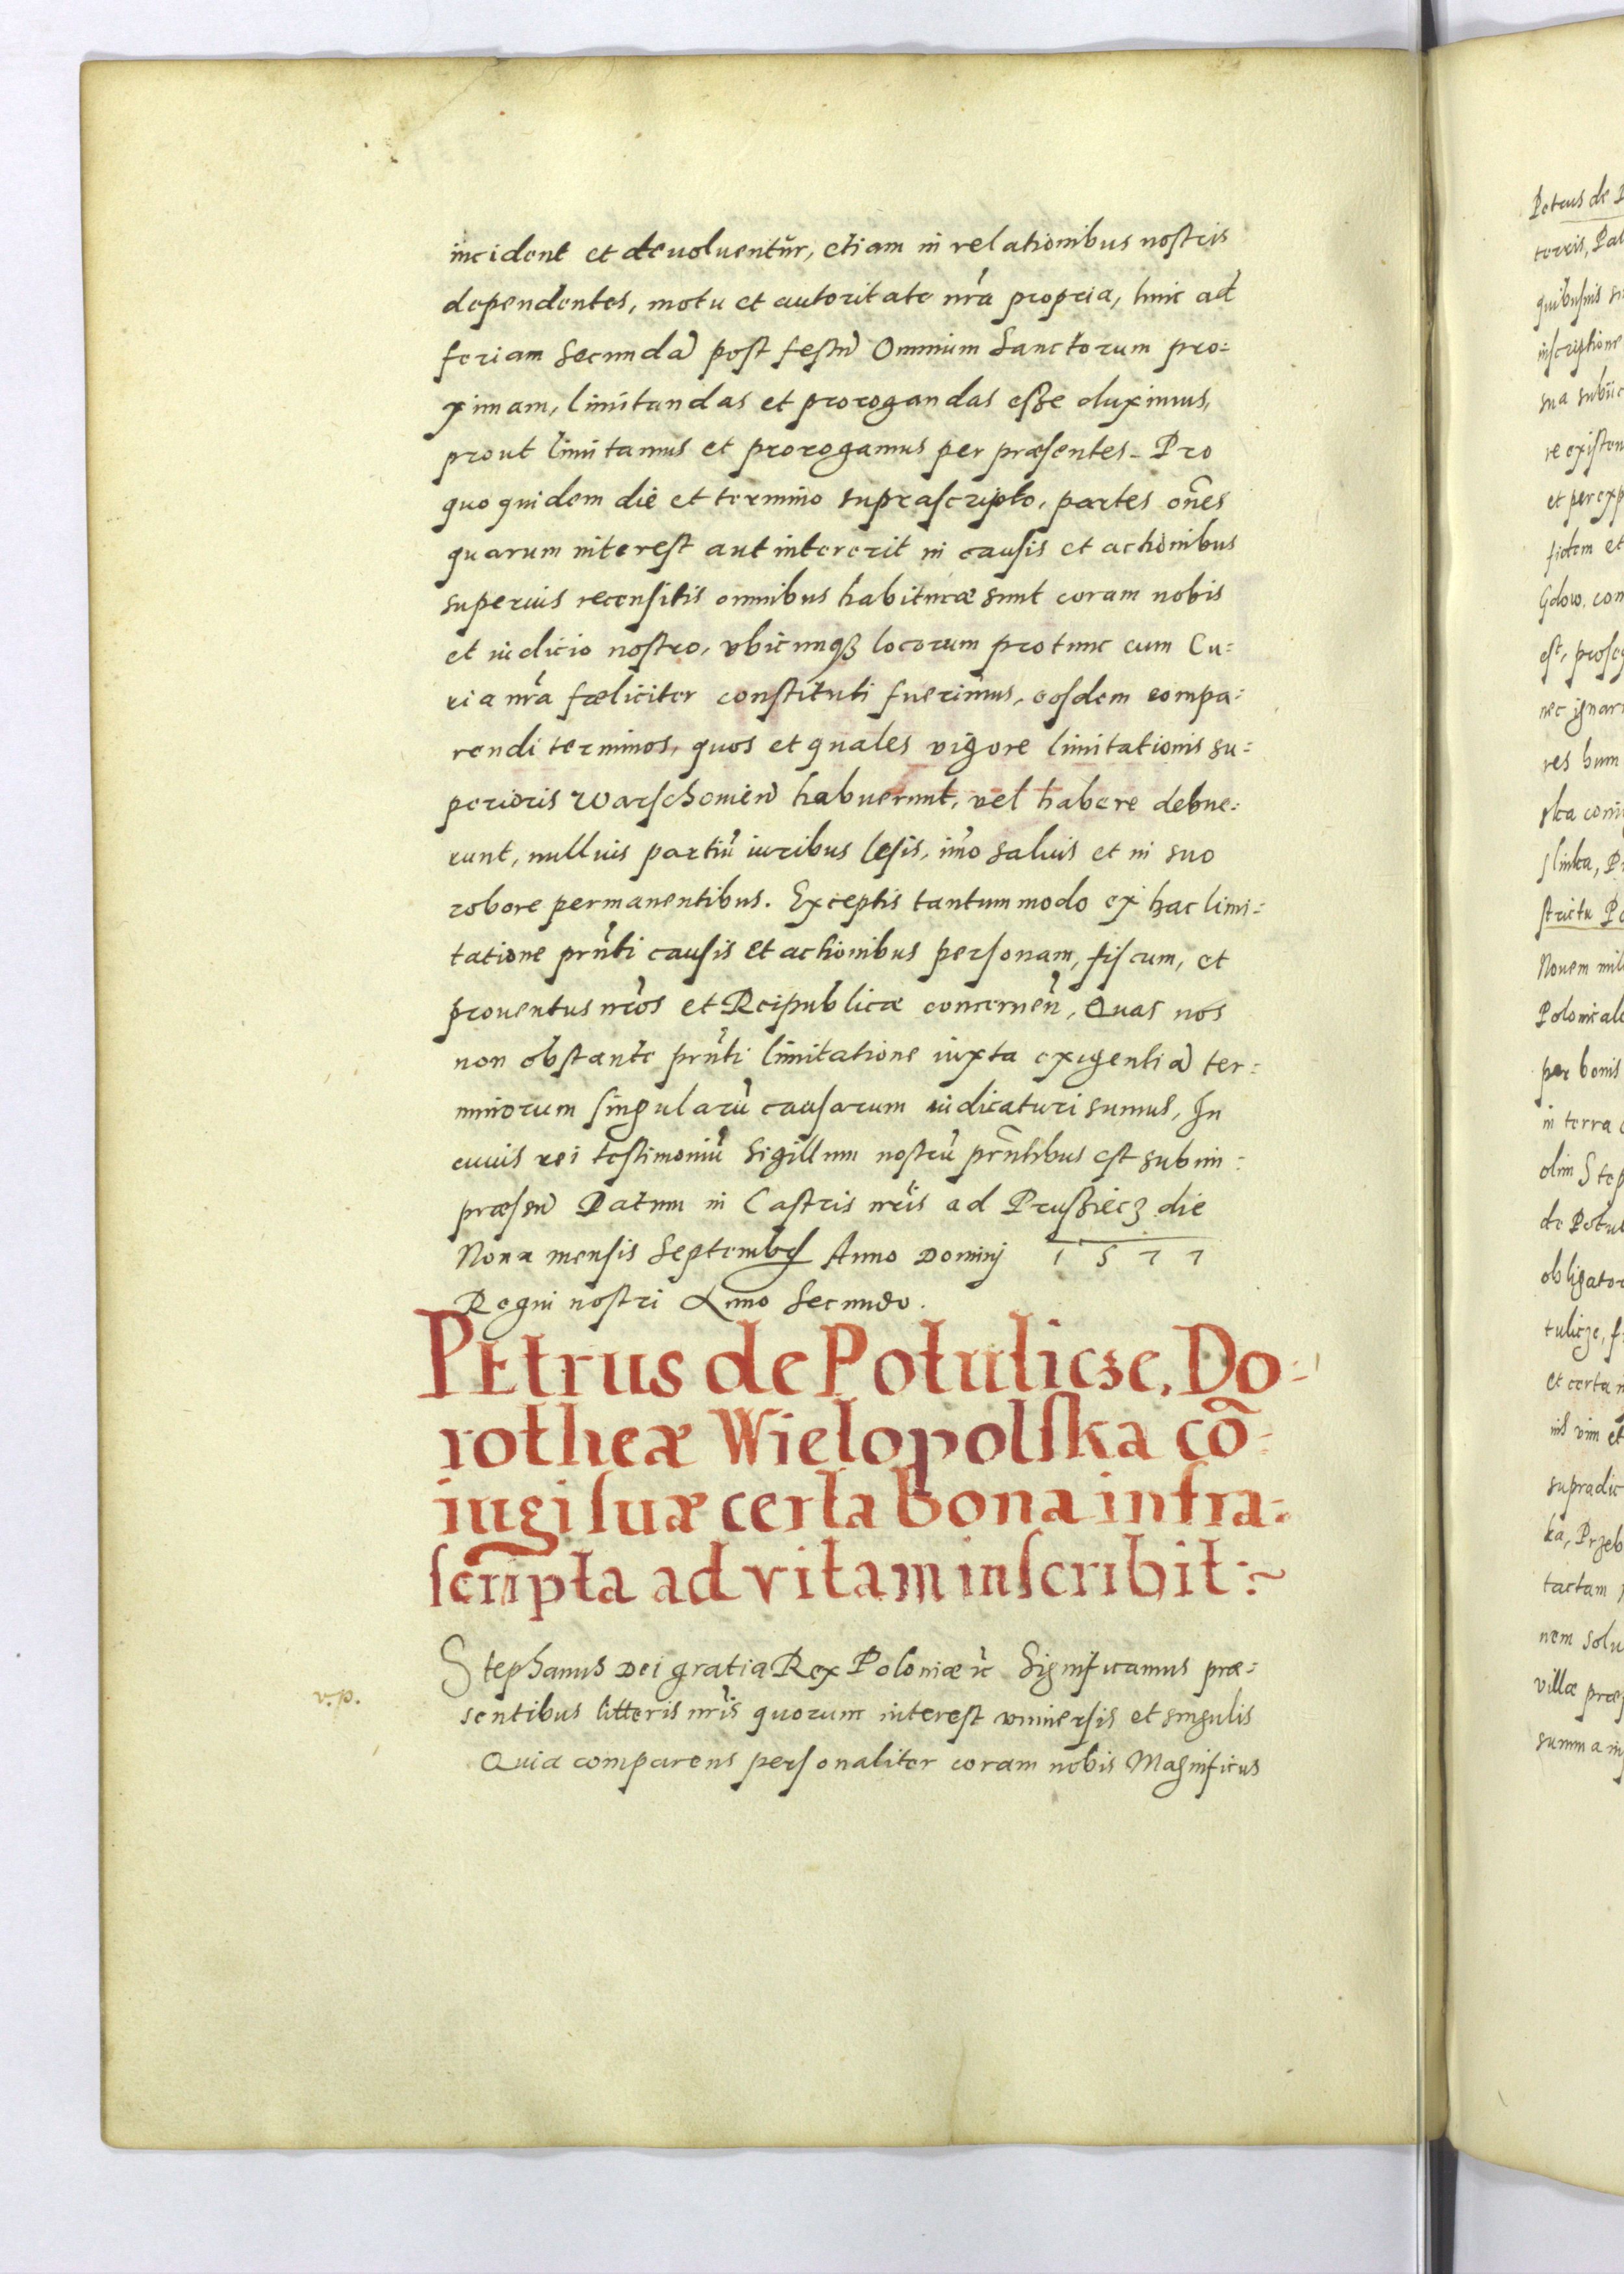 incident et deuoluentur, etiam in relationibus nostris
dependentes, motu et autoritate nr̃a propria, hinc ad
feriam Secundã post festũ Omnium Sanctorum pro=
ximam, limitandas et prorogandas eſße duximus,
prout limitamus et prorogamus per præsentes. Pro
quo quidem die et termino suprascripto, partes om̃es
quarum interest aut intererit in causis et actionibus
superius recensitis omnibus habituræ sunt coram nobis
et iudicio nostro, vbicunqꝫ locorum pro tunc cum Cu=
ria nr̃a fœliciter constituti fuerimus, eosdem compa=
rendi terminos, quos et quales vigore limitationis su=
perioris Warschouieñ habuerunt, vel habere debue=
runt, nullius partiũ iuribus lesis, im̃o saluis et in suo
robore permanentibus. Exceptis tantummodo ex hac limi=
tatione prñti causis et actionibus personam, fiscum, et
prouentus nr̃os et Reipublicæ concerneñ, Quas nos
non obstante prñti limitatione iuxta exigentiã ter=
minorum singularũ causarum iudicaturi sumus, In
cuius rei testimoniũ Sigillum nostrũ prñtibus est subim=
præssũ Datum in Castris nr̃is ad Prußiecz die
Nona mensis Septembr̃ Anno Dominj 1577
Regni nostri Anno Secundo.
PEtrus de Potulicze, Do=
rotheæ Wielopolſka cõ=
iugi ſuæ certa bona infra=
ſcripta ad vitam inſcribit:~
Stephanus Dei gratia Rex Poloniæ ꝛc Significamus præ=
v.p.
sentibus litteris nr̃is quorum interest vniuersis et singulis
Quia comparens personaliter coram nobis Magnificus
Petrus de P
terris, Pal
quibusuis
inscriptione
sua subiic
re existen
et per exp
fidem et
Gdow, con
est, prof
nec ignar
res bum
ska coni
slinka, P
strictu P
Nouem mil
Polonical
per bonis
in terra
olim Step
de Potul
obligator
tulicze, f
et certa
nis vim et
supradic
ka, Przeb
tactam
nem solu
villæ præ
summa